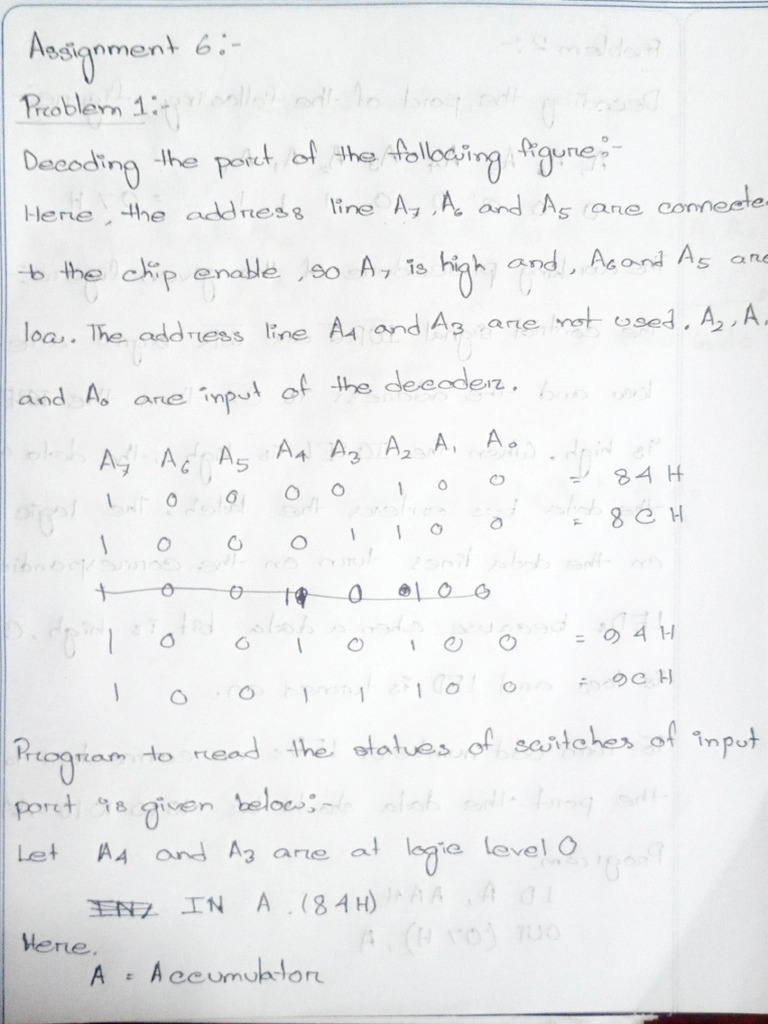 Assignment 6:-
Problem 1:-
Decoding the port of the following figure:-
Here, the address line A7, A6 and A5 are connecte
to the chip enable, so A7 is high and, A6 and A5 are
low. The address line A4 and A3 are not used. A2, A1
and A0 are input of the decoder.
A7 A6 A5 A4 A3 A2 A1 A0
1 0 0 0 0 1 0 0 = 84 H
1 0 0 0 1 1 0 0 = 8C H
1 0 0 1 0 1 0 0
1 0 0 1 0 1 0 0 = 94 H
1 0 0 1 1 1 0 0 = 9C H
Program to read the statues of switches of input
port is given below:-
Let A4 and A3 are at logic level 0
IN IN A, (84H)
Here,
A = Accumulator